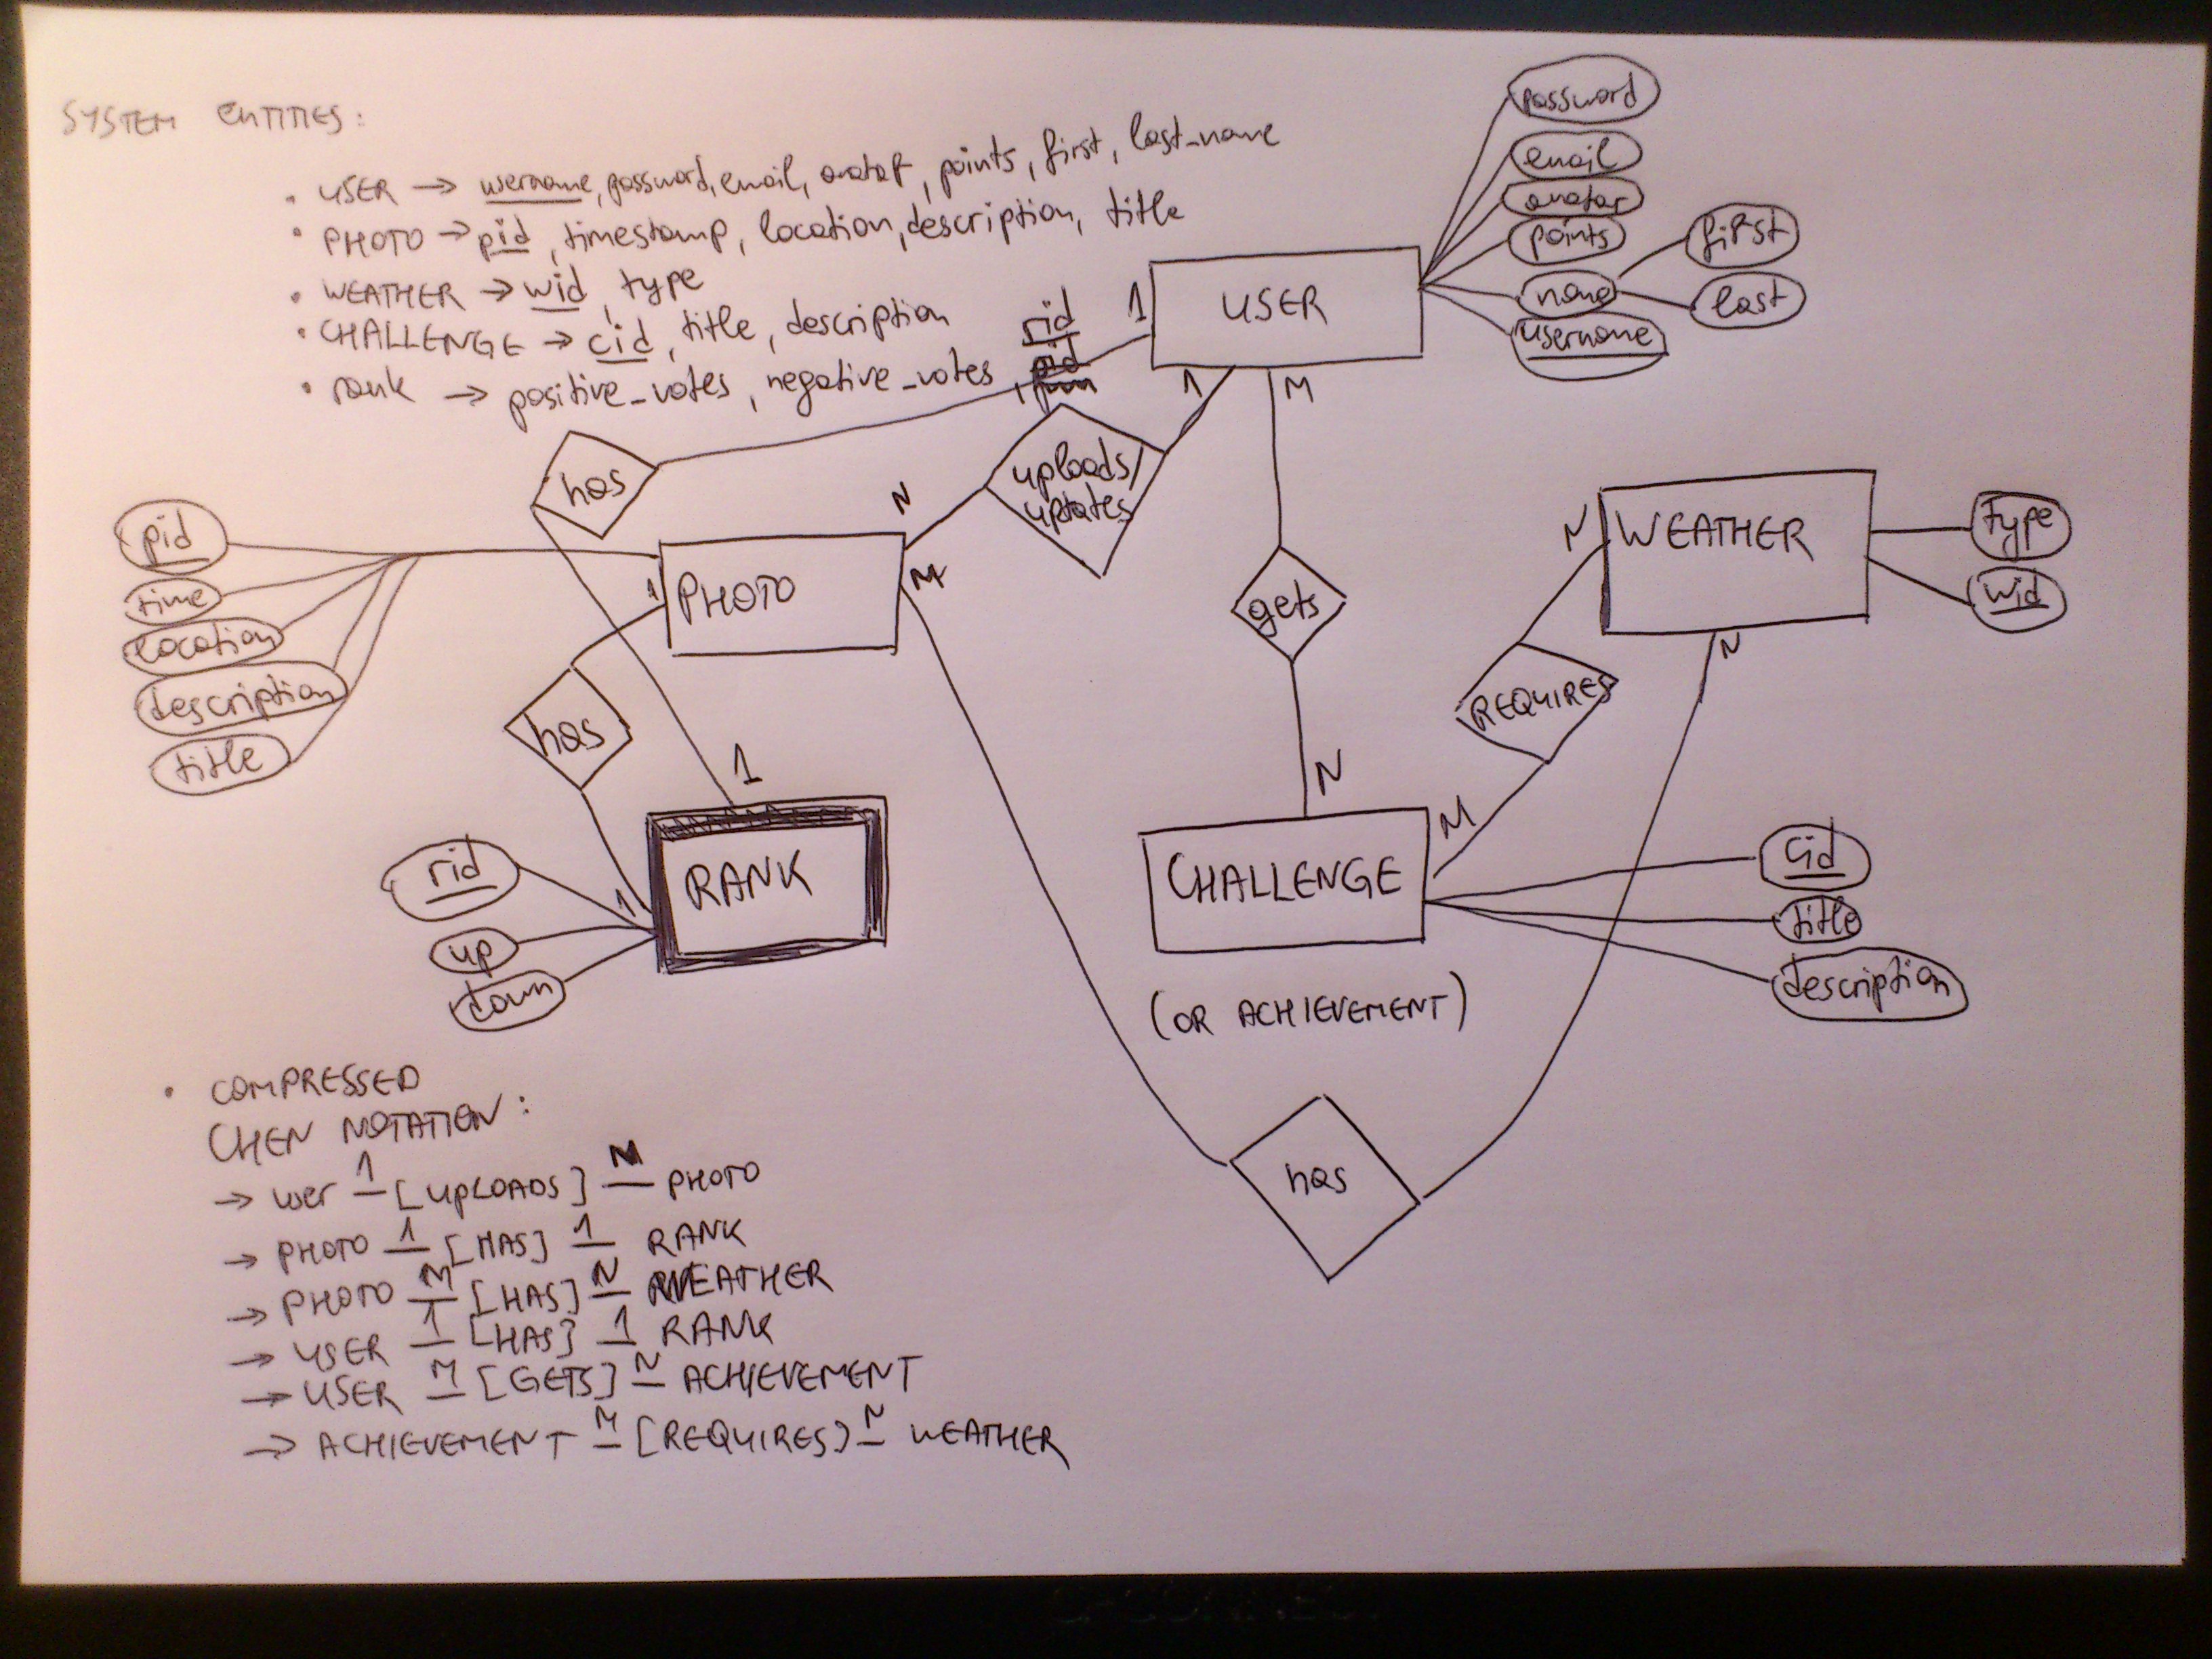 SYSTEM ENTITIES:
• USER → username, password, email, avatar, points, first, last_name
• PHOTO → pid, timestamp, location, description, title
• WEATHER → wid, type
• CHALLENGE → cid, title, description
• rank → positive_votes, negative_votes, rid
pid
password
email
avatar
points
name
first
last
username
1 USER
1
M
has
uploads/
uptates
N
pid
time
location
description
title
1 PHOTO
M
gets
N WEATHER
N
type
wid
REQUIRES
has
1
N
M
rid
up
down
1 RANK
CHALLENGE
(OR ACHIEVEMENT)
cid
title
description
has
• COMPRESSED
CHEN NOTATION:
→ user 1 [UPLOADS] N PHOTO
→ PHOTO 1 [HAS] 1 RANK
→ PHOTO M [HAS] N WEATHER
→ USER 1 [HAS] 1 RANK
→ USER M [GETS] N ACHIEVEMENT
→ ACHIEVEMENT M [REQUIRES) N WEATHER